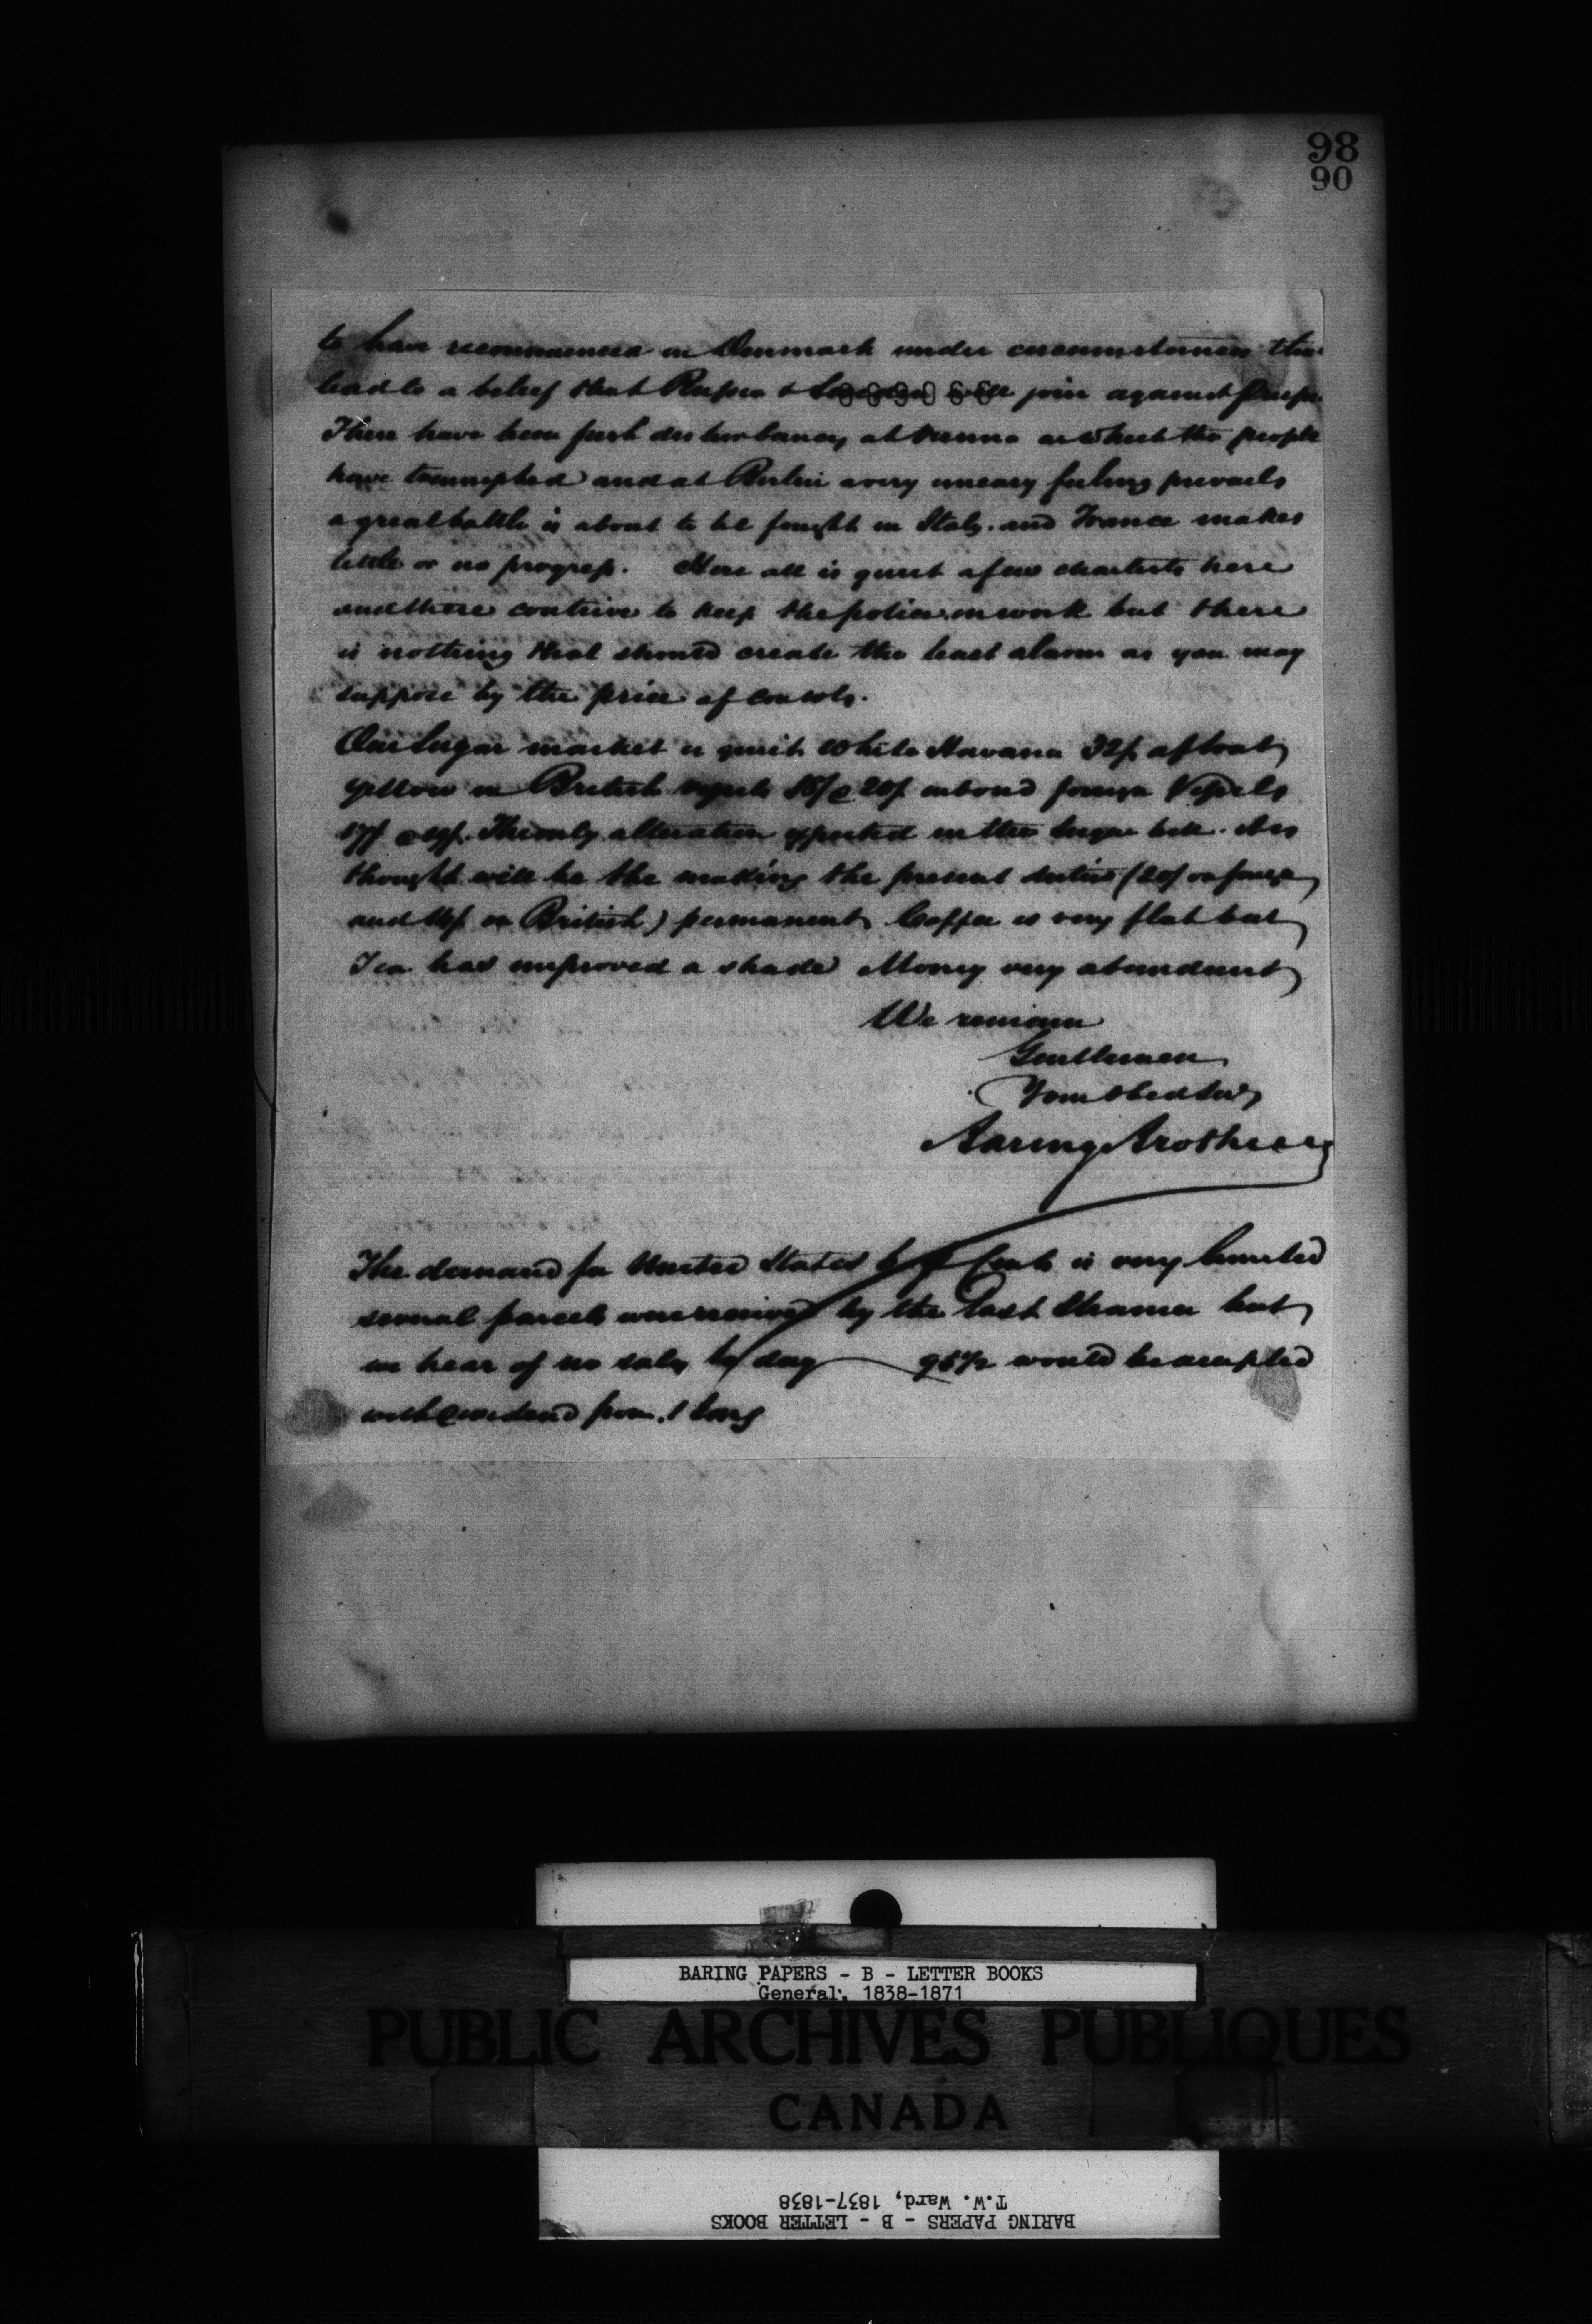 98
90
to have recommenced in Denmark under circumstances that
lead to a belief that Russia & will join against Prussia
There have been fresh disturbances at Vienna in which the people
have triumphed and at Berlin a very uneasy feeling prevails
a great battle is about to be fought in Italy. and France makes
little or no progress. Here all is quiet a few chartists here
and there contrive to keep the police in work but there
is nothing that should create the least alarm as you may
suppose by the price of consols.
Our Sugar market is quiet White Havana 32/. afloat
yellow in British vessels 18/ @ 20/. in bond foreign Vessels
17/ @ 19/. The only alteration expected in the Sugar bill it is
thought will be the making the present duties (20/ on foreign
and 16/. on British) permanent, Coffee is very flat but
Tea has improved a shade Money very abundant
We remain
Gentlemen
Your obed Servts
Baring Brothers
The demand for United States 6 p Cents is very limited
several parcels were received by the last steamer but
we hear of no sales to day 95½ would be accepted
with dividend from 1
BARING PAPERS - B - LETTER BOOKS
General, 1838-1871
PUBLIC ARCHIVES PUBLIQUES
CANADA
T.W. Ward, 1837-1838
BARING PAPERS - B - LETTER BOOKS